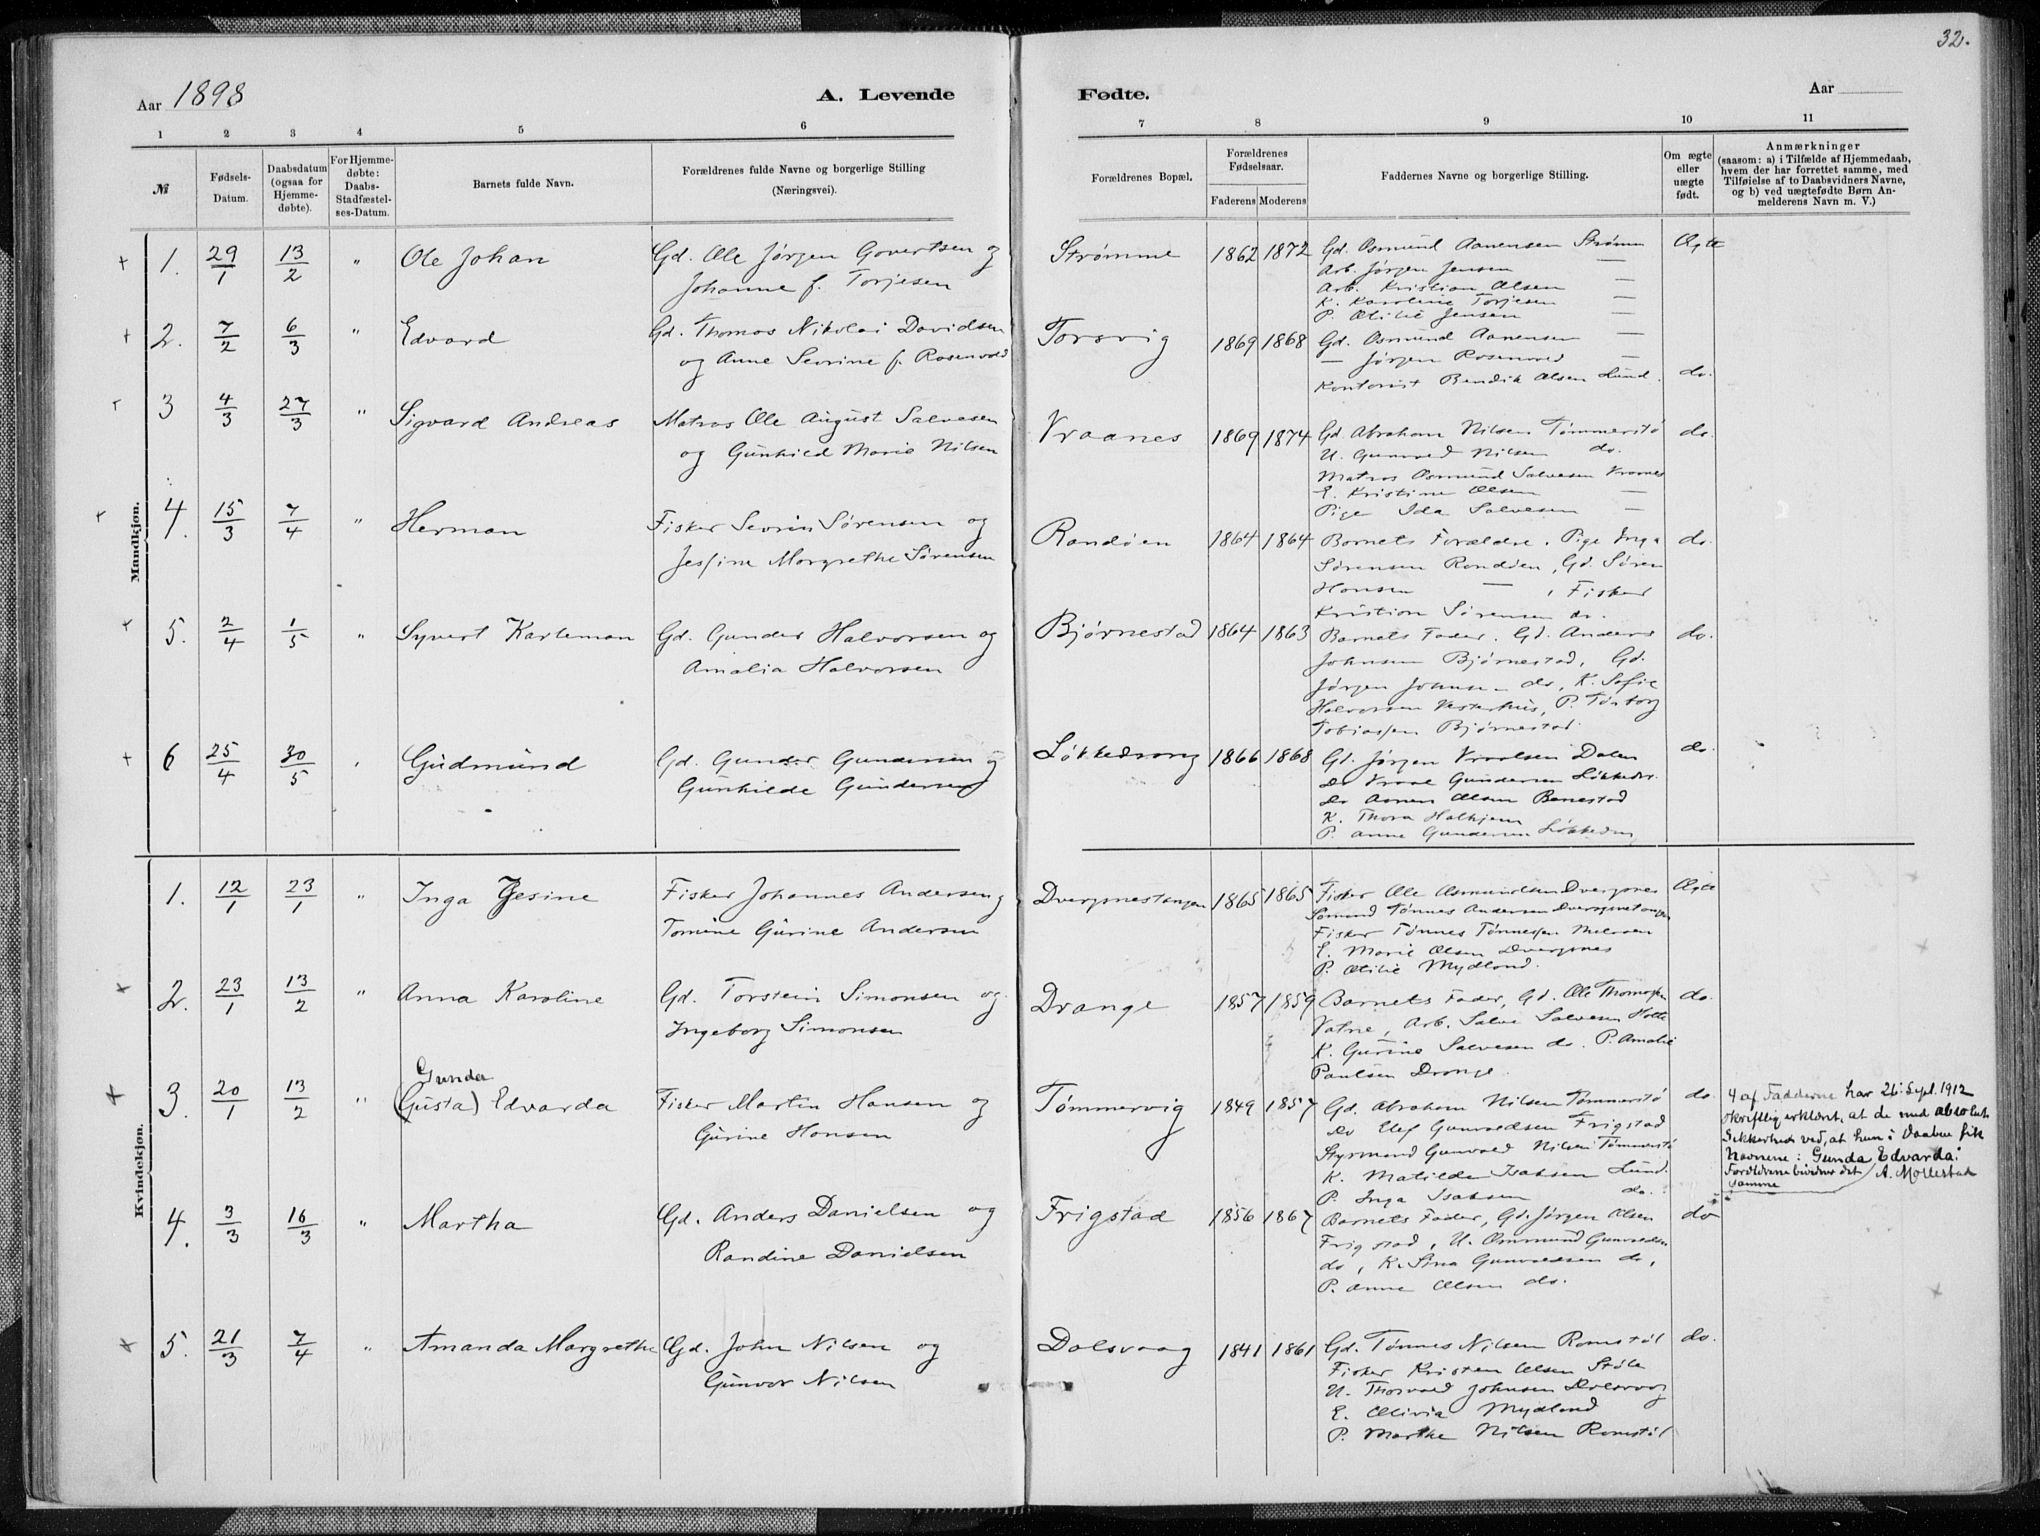 32.
Aar 1898
A. Levende
Fødte.
Aar
1 2 3 4 5 6
7 8 9 10 11
№
Fødsels-
Datum.
Daabsdatum
(ogsaa for
Hjemme-
døbte).
For Hjemme-
døbte:
Daabs-
Stadfæstel-
ses-Datum.
Barnets fulde Navn.
Forældrenes fulde Navne og borgerlige Stilling
(Næringsvei).
Forældrenes Bopæl.
Forældrenes
Fødselsaar.
Faderens Moderens
Faddernes Navne og borgerlige Stilling.
Om ægte
eller
uægte
født.
Anmærkninger
(saasom: a) i Tilfælde af Hjemmedaab,
hvem der har forrettet samme, med
Tilføielse af to Daabsvidners Navne,
og b) ved uægtefødte Børn An-
melderens Navn m. V.)
Mandkjøn.
1. 29/1 13/2 " Ole Johan
Gd. Ole Jørgen Govertsen og
Johanne f. Torjesen
Strømme 1862 1872
Gd. Osmund Aanensen Strømm
Arb. Jørgen Jensen —
Arb. Kristian Olsen —
K. Karoline Torjesen —
P. Otilie Jensen —
Ægte
2. 7/2 6/3 " Edvard
Gd. Thomas Nikolai Davidsen
og Anne Sevrine f. Rosenvold
Torsvig 1869 1868
Gd. Osmund Aanensen —
— Jørgen Rosenvold —
Kontorist Bendik Olsen Lund.
do.
3 4/3 27/3 " Sigvard Andreas
Matros Ole August Salvesen
og Gunhild Marie Nilsen
Vraanes 1869 1874
Gd. Abraham Nilsen Tømmerstø
U. Gunvald Nilsen do.
Matros Osmund Salvesen Vraanes
E. Kristine Olsen —
Pige Ida Salvesen —
do.
4. 15/3 7/4 " Herman
Fisker Sevrin Sørensen og
Jesfine Margrethe Sørensen
Randøen 1864 1864
Barnets Forældre. Pige Inga
Sørensen Randøen, Gd. Søren
Hansen — , Fisker
Kristian Sørensen do.
do.
5. 2/4 1/5 " Syvert Karleman
Gd. Gunder Halvorsen og
Amalia Halvorsen
Bjørnestad 1864 1863
Barnets Fader. Gd. Anders
Johnsen Bjørnestad, Gd.
Jørgen Johnsen do, K. Sofie
Halvorsen Vesterhus, P. Torborg
Tobiassen Bjørnestad.
do.
6 25/4 30/5 " Gudmund
Gd. Gunder Gundersen og
Gunhilde Gundersen
Løkkedrang 1866 1868
Gd. Jørgen Vraalsen Dalen
Do Vraal Gundersen Løkkedr.
Do Aanen Olsen Benestad
K. Thora Halkjem
P. Anne Gundersen Løkkedr
do.
Kvindekjøn.
1. 12/1 23/1 " Inga Jesine
Fisker Johannes Andersen og
Tomine Gurine Andersen
Dvergnestangen 1865 1865
Fisker Ole Osmundsen Dvergsnes
Sømand Tønnes Andersen Dvergsnetangen
Fisker Tønnes Tønnessen
E. Marie Olsen Dvergsnes
P. Otilie Mydland.
Ægte
2. 23/1 13/2 " Anna Karoline
Gd. Torstein Simonsen og
Ingeborg Simonsen
Drange 1857 1859
Barnets Fader, Gd. Ole Thomassen
Vatne, Arb. Salve Salvesen Holte
K. Gurine Salvesen do. P. Amalie
Paulsen Drange.
do.
Gunda
3. 20/1 13/2 " (Gusta) Edvarda
Fisker Martin Hansen og
Gurine Hansen
Tømmervig 1849 1857
Gd. Abraham Nilsen Tømmerstø
Do Elef Gunvaldsen Frigstad
Styrmand Gunvald Nilsen Tømmerstø
K. Matilde Isaksen Lund.
P. Inga Isaksen do.
do.
4 af Fadderne har 26. Sept. 1912
skriftlig erklæret, at de med absolut
Sikkerhed ved, at hun i Daaben fik
Navnene: Gunda Edvarda.
Forældrene bevidner det
samme
A. Møllestad
4. 3/3 16/3 " Martha
Gd. Anders Danielsen og
Randine Danielsen
Frigstad 1856 1867
Barnets Fader, Gd. Jørgen Olsen
Frigstad, U. Ommund Gunvaldsen
do, K. Sina Gunvaldsen do,
P. Anne Olsen do.
do
5. 21/3 7/4 " Amanda Margrethe
Gd. John Nilsen og
Gunvor Nilsen
Dalsvaag 1841 1861
Gd. Tønnes Nilsen Romstøl
Fisker Kristen Olsen Støle
U. Thorvald Johnsen Dalsvaag
E. Olivia Mydland
P. Marthe Nilsen Romstøl
do.